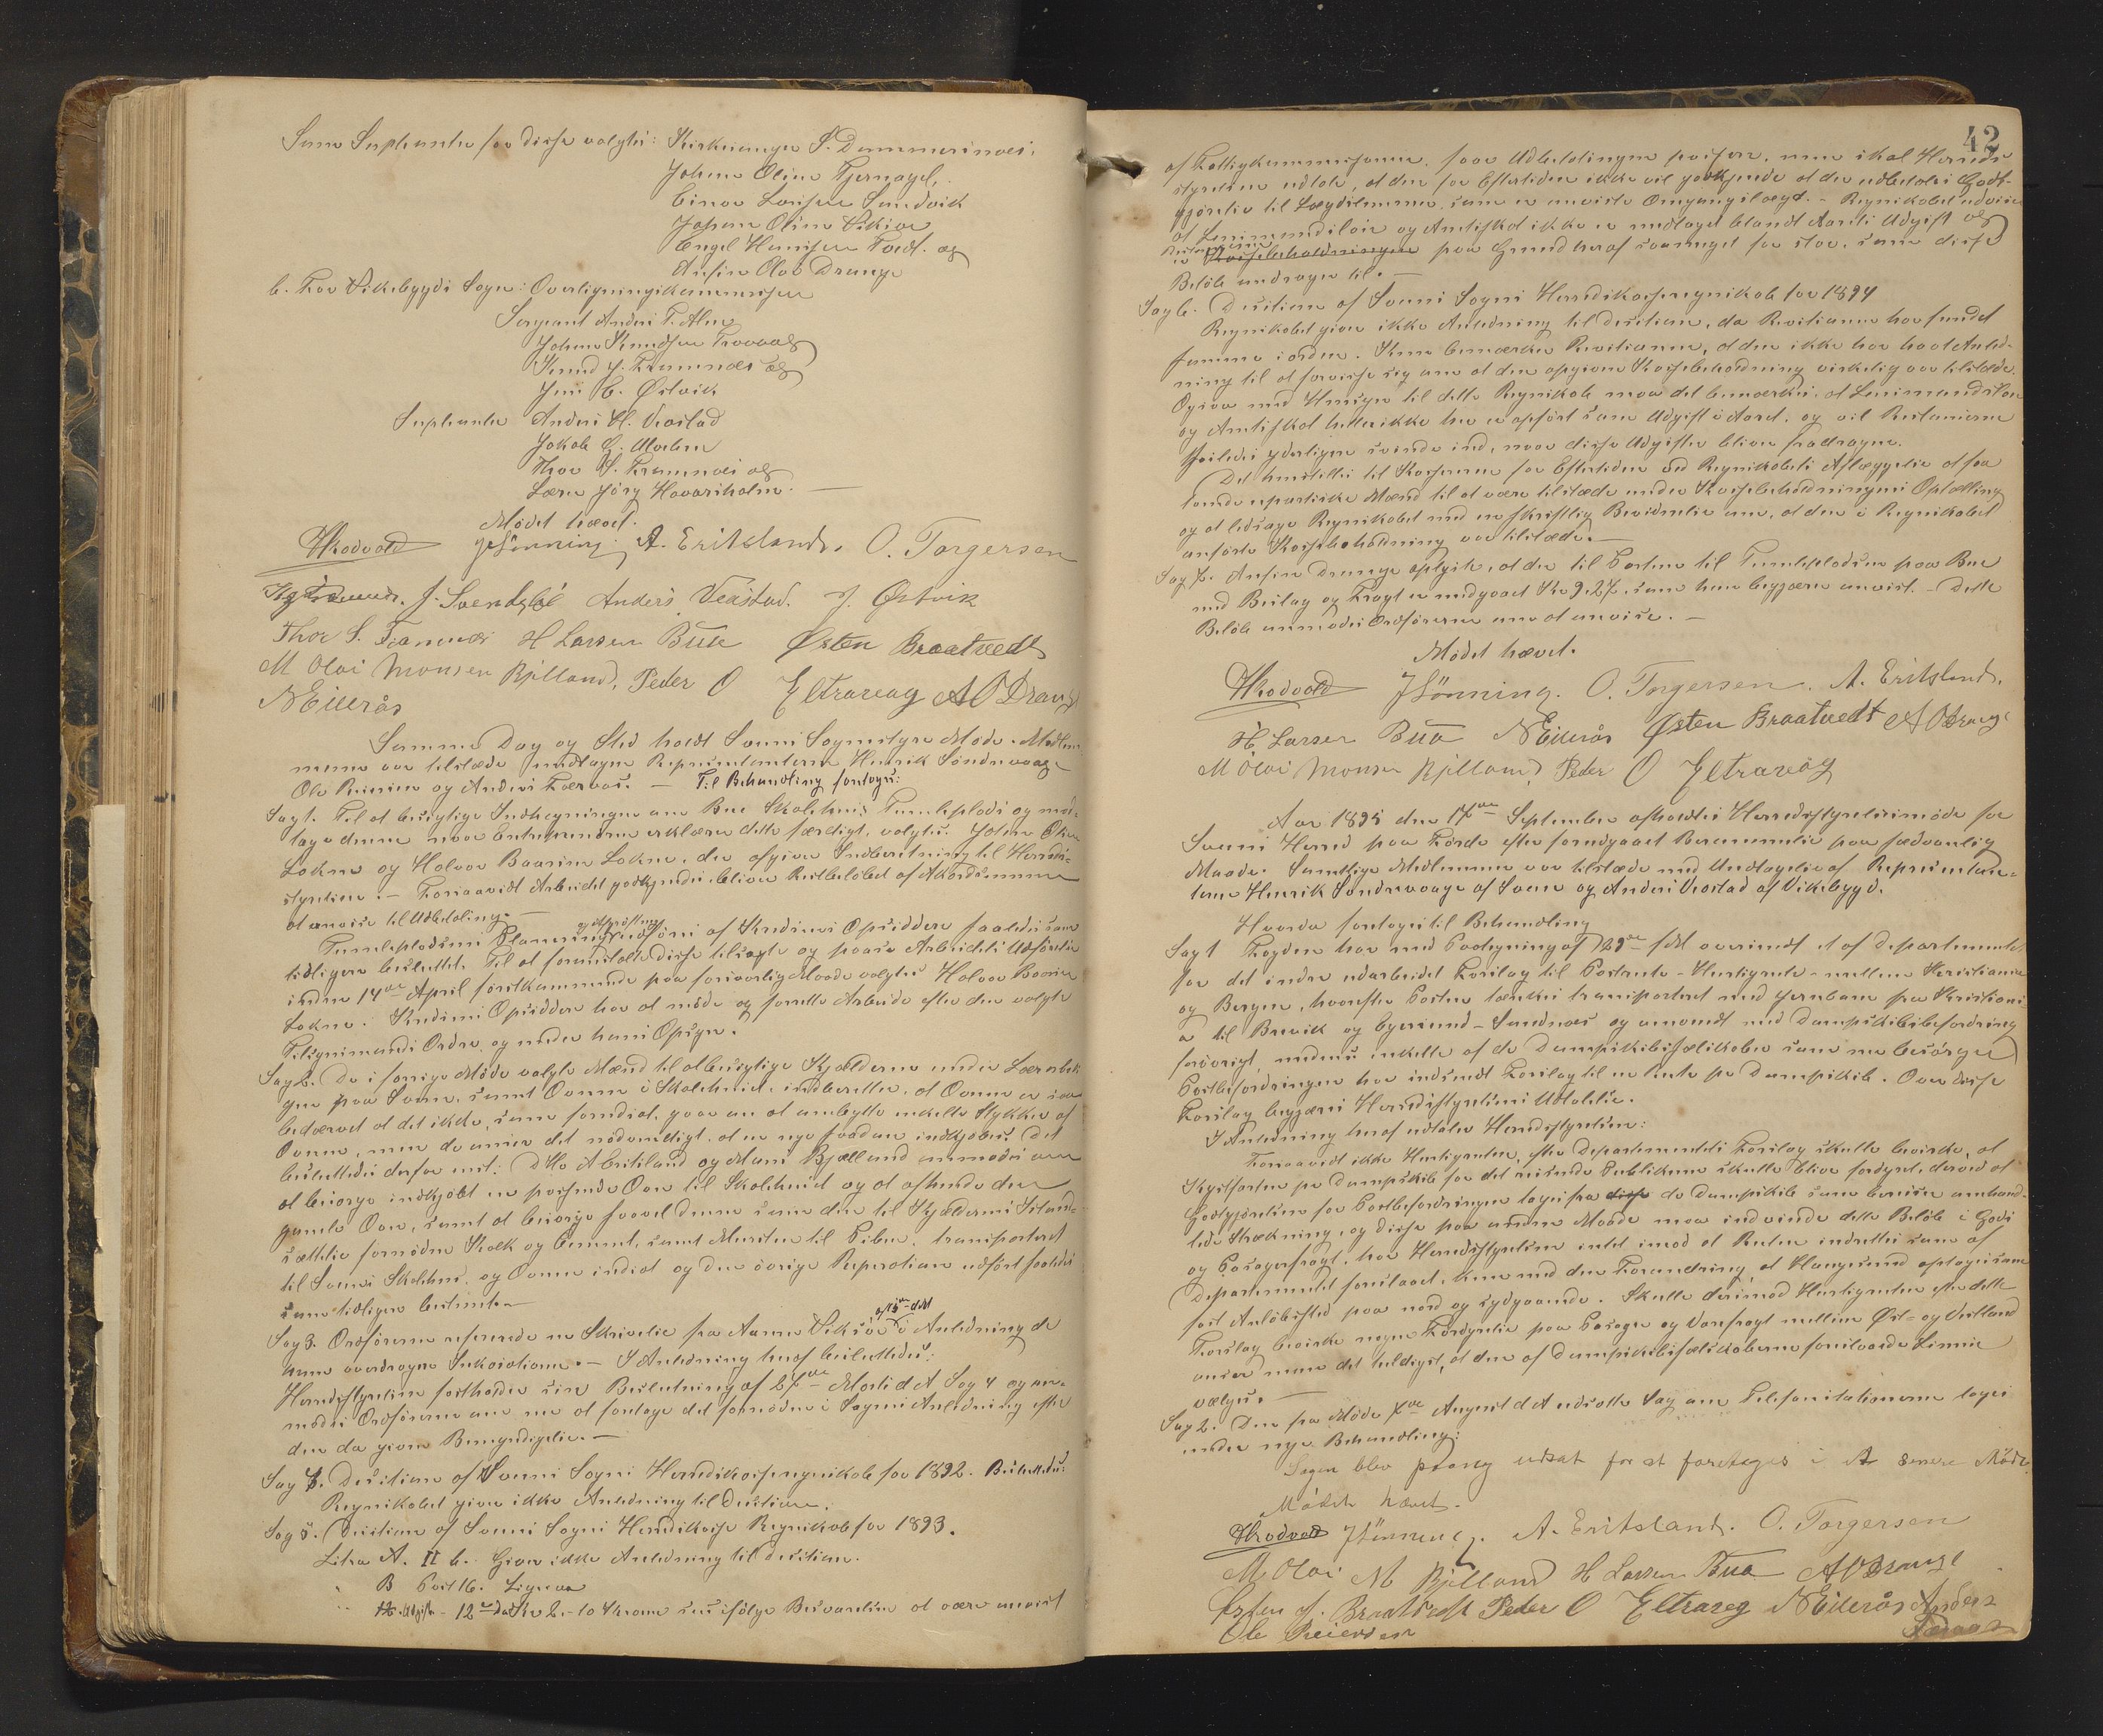 Som Suplianter for disse valgtes: Kirkesanger S. Dommersnes,
Johan Olsen Tjernagel,
Einar Larsen Sandvik
Johan Olsen Vikse
Engel Hansen Tveit. og
Ansin Olas Drange
b. For Vikebygds Sogn: Overligningskommission
Sergeant Anders T. Alne
Johan Knudsen Trovaag
Knud J. Framnes og
Jens E. Østvik
Suplianter Anders H. Veastad
Jakob G.
Thor S. Framnes og
Lærer Jørg Havarsholm. —
Mødet hævet.
HRodvold JSønning. A. Eritsland. O. Torgersen
J. Svendsbö Anders Veastad. J. Østvik
Thor S. Framnes H Larsen Bua Østen Braatvedt
M Olai Monsen Bjelland, Peder O Eltravaag A O Drange
N Eikeraas
Samme Dag og Sted holdt Sveens Sognestyre Møde. Medlem-
merne var tilstede undtagen Repræsentanterne Henrik Søndrevaage
Ole Reiersen og Anders Færaas. — Til Behandling foretoges:
Sag 1. Til at besigtige Indhegningen om Bue Skolehuses Tunteplads og mod-
tage denne naar Entreprenøren erklærer dette færdigt, valgtes. Johan Olsen
Lokne og Halvor Baarsen Lokne, der afgiver Indberetning til Herreds-
styrelsen. — Forsaavidt Arbeidet godkjendes bliver Restbeløbet af Akkordsummen
at anvise til Udbetaling. —
Tunteplodsens Planering udføres af Kredsens Opsiddere saaledes som
tidligere besluttet. Til at foranstalte disse tilsagte og paase Arbeidets Udførelse
inden 14de April førstkommende paa forsvarlig Maade valgtes Halvor Baarsen
Lokne. Kredsens Opsiddere har at møde og forrette Arbeide efter den valgte
Tilsynsmands Ordre og under hans Opsyn.
Sag 2. De i forrige Møde valgte Mænd til at besigtige Kjælderen under Lærerbolig-
gen paa Sveen, samt Ovnen i Skolehuset indberetter, at Ovnen er saa
bedærvet at det ikke, som forudsat, gaar an at ombytte enkelte Stykker af
Ovnen, men de anser det nødvendigt, at en nye saadan indkjøbes. Det
besluttedes derfor enst: Dhr A Eritsland og Mons Bjelland anmodes om
at besørge indkjøbt en passende Ovn til Skolehuset og at afhænde den
gamle Ovn, samt at besørge saavel denne som den til Kjælderens Istand-
sættelse fornødne Kalk og Cement, samt Mursten til Piben, transporteret
til Sveens Skolehus, og Ovnen indsat og den øvrige Reparation udført saaledes
som tidligere bestemt. —
Sag 3. Ordføreren refererede en Skrivelse fra Aamon Vikse af 5te ds M i Anledning de
ham overdragne Inkassationer. — I Anledning heraf besluttedes:
Herredsstyrelsen fastholder sin Beslutning af 27de Marts d A Sag 4 og an-
moder Ordføreren om nu at foretage det fornødne i Sagens Anledning efter
den da givne Bemyndigelse. —
Sag 4. Decision af Sveens Sogns Herredskasseregnskab for 1892. Besluttedes:
Regnskabet giver ikke Anledning til Decision.
Sag 5. Decision af Sveens Sogns Herredskasse Regnskab for 1893.
Litra A. II b. Giver ikke Anledning til Decision.
B Post 16. Ligesaa
Udgift - 12te 2. - 10 Kroner sees ifølge Besvarelsen at være anvist
42
af Fattigkommissionen, saar Udbetalingen passere, men skal Herreds-
styrelsen udtale, at den for Eftertiden ikke vil godkjende at der udbetales Godt-
gjørelse til Lægdslemmer, som er anviste Omgangslægd. — Regnskabet udviser
at Lensmandsløn og Amtsskat ikke er medtaget blandt Aarets Udgift og
er Kassebeholdningen paa Grund heraf saameget for stor, som disse
Beløb andrager til. —
Sag 6. Decision af Sveens Sogns Herredskasseregnskab for 1894
Regnskabet giver ikke Anledning til Decision, da Revisionen har fundet
samme i orden. Kun bemærker Revisionen, at den ikke har havt Anled-
ning til at forvisse sig om at den opgivne Kassebeholdning virkelig var tilstede.
Ogsaa med Hensyn til dette Regnskab maa det bemærkes, at Lensmandsløn
og Amtsskat heller ikke her er opført som Udgift i Aaret, og vil Restancerne
saaledes yderligere svinde ind, naar disse Udgifter bliver fradragne.
Det henstilles til Kasseren for Eftertiden ved Regnskabets Aflæggelse at faa
tvende upartiske Mænd til at være tilstede under Kassebeholdningens Optælling
og at ledsage Regnskabet med en skriftlig Bevidnelse om, at den i Regnskabet
anførte Kassebeholdning var tilstede. —
Sag 7. Ansin Drange oplyste, at der til Porten til Tunteplodsen paa Bue
med Beslag og Fragt er medgaaet Kr 9.27, som han begjærer anvist. — Dette
Beløb anmodes Ordføreren om at anvise. —
Mødet hævet.
HRodvold JSønning. O. Torgersen. A. Eritsland.
H. Larsen Bua N Eikeraas Østen Braatvedt A O Drange
M Olai Monsen Bjelland Peder O Eltravaag
Aar 1895 den 17de September afholdtes Herredsstyrelsesmøde for
Sveens Herred paa Førde efter forudgaaet Berammelse paa sædvanlig
Maade. Samtlige Medlemmer var tilstede med Undtagelse af Repræsentan-
terne Henrik Søndrevaage af Sveen og Anders Veastad af Vikebygd.
Hvorda foretoges til Behandling
Sag 1 Fogden har med Paategning af 29de f M oversendt et af Departementet
for det indre udarbeidet Forslag til Postrute - Hurtigrute - mellem Kristiania
og Bergen, hvorefter Posten tænkes transporteret med Jernbane fra Kristiani-
a til Brevik og Egersund - Sandnes og omvendt med Dampskibsbefordring
forøvrigt, medens enkelte af de Dampskibsselskaber som nu besørger
Postbefordringen har indsendt Forslag til en Rute pr Dampskib. Over disse
Forslag begjæres Herredsstyrelsens Udtalelse.
I Anledning heraf udtaler Herredsstyrelsen:
Forsaavidt ikke Hurtigruten, efter Departementets Forslag skulle bevirke, at
Kystfarten pr Dampskib for det reisende Publikum skulle blive fordyret, derved at
Godtgjørelsen for Postbefordringen tages fra de Dampskibe som bereiser omhand-
lede Strækning, og disse paa anden Maade maa indvinde dette Beløb i Gods
og Passagerfragt, har Herredsstyrelsen intet imod at Ruten indrettes som af
Departementet foreslaaet, kun med den Forandring at Haugesund optages som
fast Anløbssted paa nord og sydgaaende. Skulle derimod Hurtigruten efter dette
Forslag bevirke nogen Fordyrelse paa Passager og Varefragt mellem Øst- og Vestland
anser man det heldigst, at den af Dampskibsselskaberne foreslaaede Linnie
vælges. —
Sag 2. Den fra Møde 7de August d A udsatte Sag om Telefonstationerne toges
under nye Behandling:
Sagen blev paany udsat for at foretages i et senere Møde.
Mødet hævet.
HRodvold JSønning. A. Eritsland. O. Torgersen
M. Olai M Bjelland H Larsen Bua A O Drange
Østen J. Braatvedt Peder O Eltravaag N Eikeraas Anders
Ole Reiersen Færaas